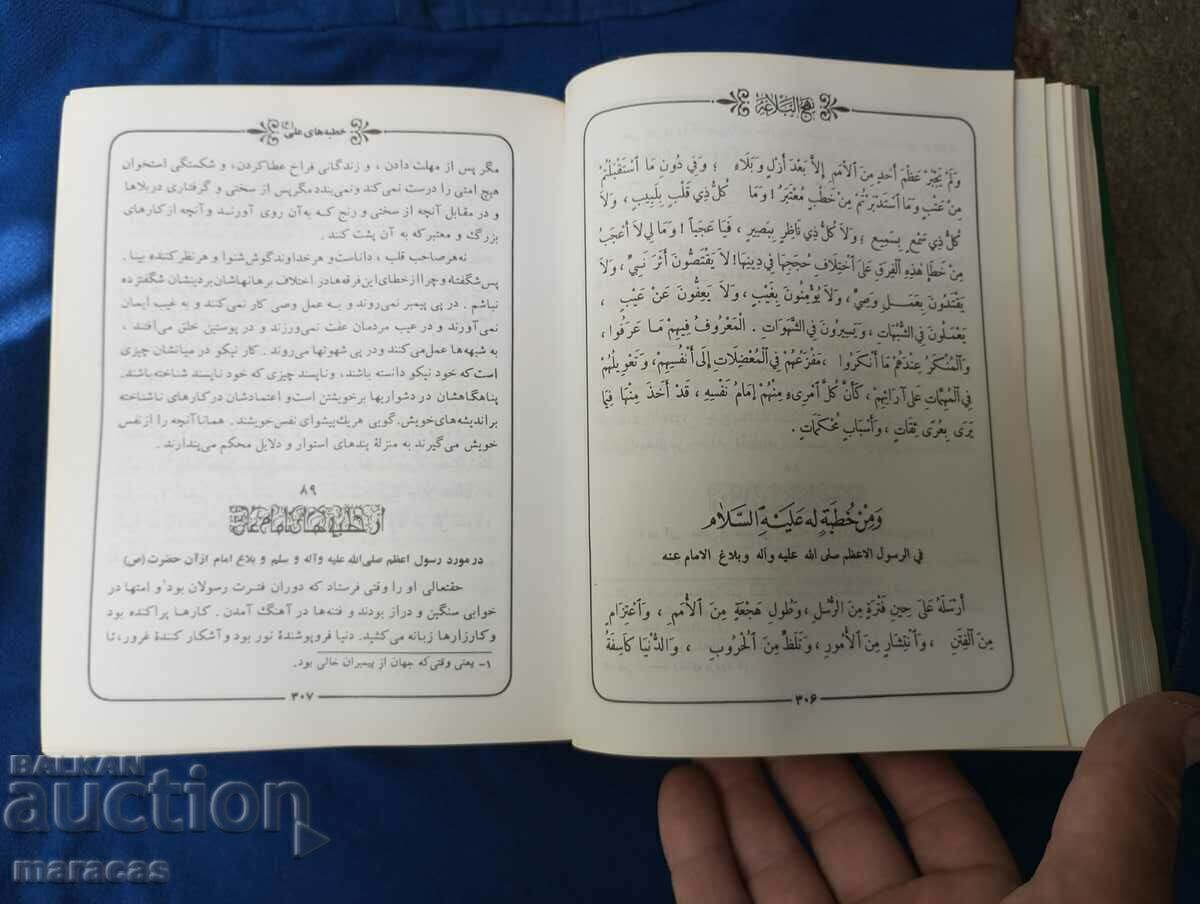 نهج البلاغة
وَلَمْ يَجْبُرْ عَظْمَ أَحَدٍ مِنَ الْأُمَمِ إِلَّا بَعْدَ أَزْلٍ وَبَلَاءٍ ؛ وَفِي دُونِ مَا اَسْتَقْبَلْتُمْ
مِنْ عَتْبٍ وَمَا اَسْتَدْبَرْتُمْ مِنْ خَطْبٍ مُعْتَبَرٌ ! وَمَا كُلُّ ذِي قَلْبٍ بِلَبِيبٍ ، وَلَا
كُلُّ ذِي سَمْعٍ بِسَمِيعٍ ؛ وَلَا كُلُّ ذِي نَاظِرٍ بِبَصِيرٍ ، فَيَا عَجَباً ! وَمَا لِي لَا أَعْجَبُ
مِنْ خَطَإِ هٰذِهِ الْفِرَقِ عَلَى اَخْتِلَافِ حُجَجِهَا فِي دِينِهَا ! لَا يَقْتَصُّونَ أَثَرَ نَبِيٍّ ، وَلَا
يَقْتَدُونَ بِعَمَلِ وَصِيٍّ ، وَلَا يُؤْمِنُونَ بِغَيْبٍ ، وَلَا يَعِفُّونَ عَنْ عَيْبٍ ،
يَعْمَلُونَ فِي الشُّبُهَاتِ ، وَيَسِيرُونَ فِي الشَّهَوَاتِ . الْمَعْرُوفُ فِيهِمْ مَا عَرَفُوا ،
وَالْمُنْكَرُ عِنْدَهُمْ مَا أَنْكَرُوا ، مَفْزَعُهُمْ فِي الْمُعْضِلَاتِ إِلَى أَنْفُسِهِمْ ، وَتَعْوِيلُهُمْ
فِي الْمُهِمَّاتِ عَلَى آرَائِهِمْ ، كَأَنَّ كُلَّ اَمْرِىءٍ مِنْهُمْ إِمَامُ نَفْسِهِ ، قَدْ أَخَذَ مِنْهَا فِيمَا
يَرَى بِعُرًى ثِقَاتٍ ، وَأَسْبَابٍ مُحْكَمَاتٍ .
وَمِنْ خُطْبَةٍ لَهُ عَلَيْهِ السَّلَامُ
فی الرسول الاعظم صلی الله علیه وآله وبلاغ الامام عنه
أَرْسَلَهُ عَلَى حِينِ فَتْرَةٍ مِنَ الرُّسُلِ ، وَطُولِ هَجْعَةٍ مِنَ الْأُمَمِ ، وَاَعْتِزَامٍ
مِنَ الْفِتَنِ ، وَاَنْتِشَارٍ مِنَ الْأُمُورِ ، وَتَلَظٍّ مِنَ الْحُرُوبِ ، وَالدُّنْيَا كَاسِفَةُ
۳۰۶
خطبه های علی (ع)
مگر پس از مهلت دادن ، و زندگانی فراخ عطاکردن، و شکستگی استخوان
هیچ امتی را درست نمی‌کند و نمی‌بندد مگر پس از سختی و گرفتاری در بلاها
و در مقابل آنچه از سختی و رنج که به‌آن روی آورنـد و آنچه از کارهای
بزرگ و معتبر که به آن پشت کند .
نه هر صاحب قلب ، داناست و هر خداوند گوش شنوا و هر نظر کننده بینا .
پس شگفتا و چرا از خطای این فرقه‌ها در اختلاف برهانهاشان بر دینشان شگفتزده
نباشم . در پی پیمبر نمی‌روند و بـه عمل وصی کار نمی‌کنند و به غیب ایمان
نمی‌آورند و در عیب مردمان عفت نمی‌ورزند و در پوستین خلق می‌افتند ،
به شبهه‌ها عمل می‌کنند و در پی شهوتها می‌روند . کار نیکو در میانشان چیزی
است که خود نیکو دانسته باشند، و ناپسند چیزی که خود ناپسند شناخته باشند.
پناهگاهشان در دشواریها بر خویشتن است و اعتمادشان در کارهای ناشناخته
بر اندیشه‌های خویش. گویی هریك پیشوای نفس خویشند. همانا آنچه را از نفس
خویش می‌گیرند به منزلهٔ پندهای استوار و دلایل محکم می‌پندارند.
۸۹
از خطبه های امام
در مورد رسول اعظم صلی الله علیه وآله و سلم و بلاغ امام از آن حضرت (ص)
حقتعالی او را وقتی فرستاد که دوران فترت رسولان بود۱ و امتها در
خوابی سنگین و دراز بودند و فتنه‌ها در آهنگ آمدن. کارها پراکنده بود
و کارزارها زبانه می‌کشید. دنیا فروپوشندهٔ نور بود و آشکار کنندهٔ غرور، تا
۱- یعنی وقتی‌که جهان از پیمبران خالی بود.
۳۰۷
BALKAN
auction
maracas